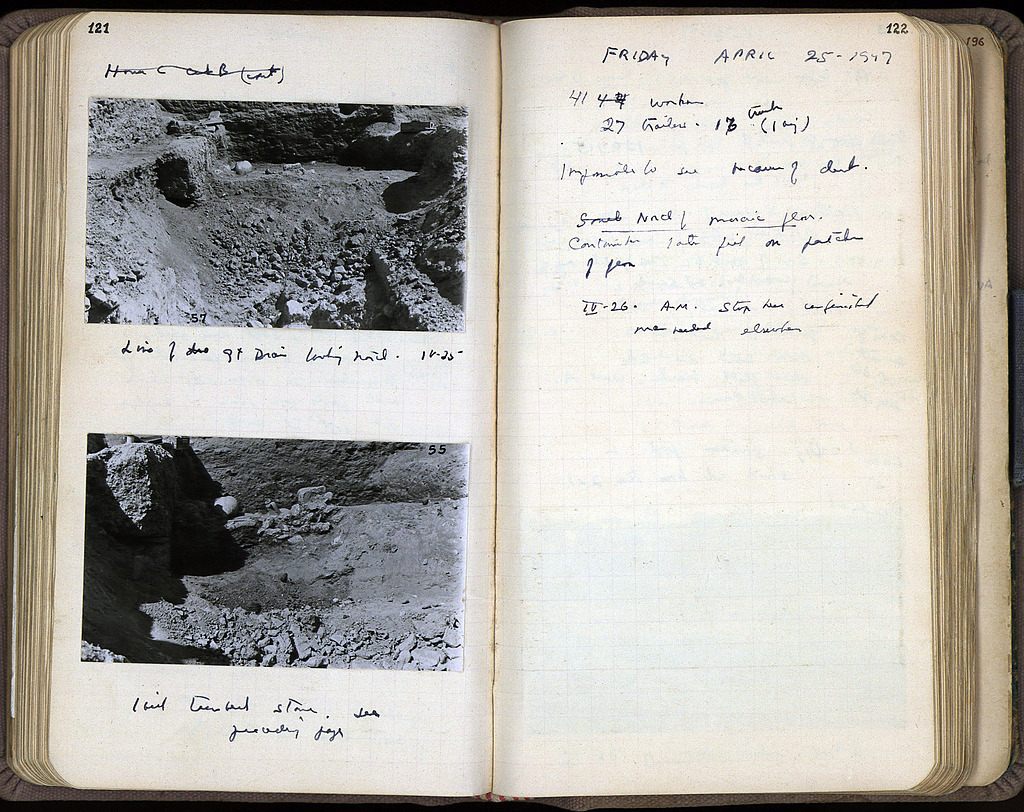 121
57
Line of Gt Drain looking North. IV-25
55
stone. see
preceding page
122
196
FRIDAY APRIL 25-1947
41 44 workmen
27 trailers. 17 trucks (1 aij)
Impossible to see because of dust.
South North of mosaic floor.
Continue late fill on patches
of floor
IV-26. A.M. Stop here
men needed elsewhere